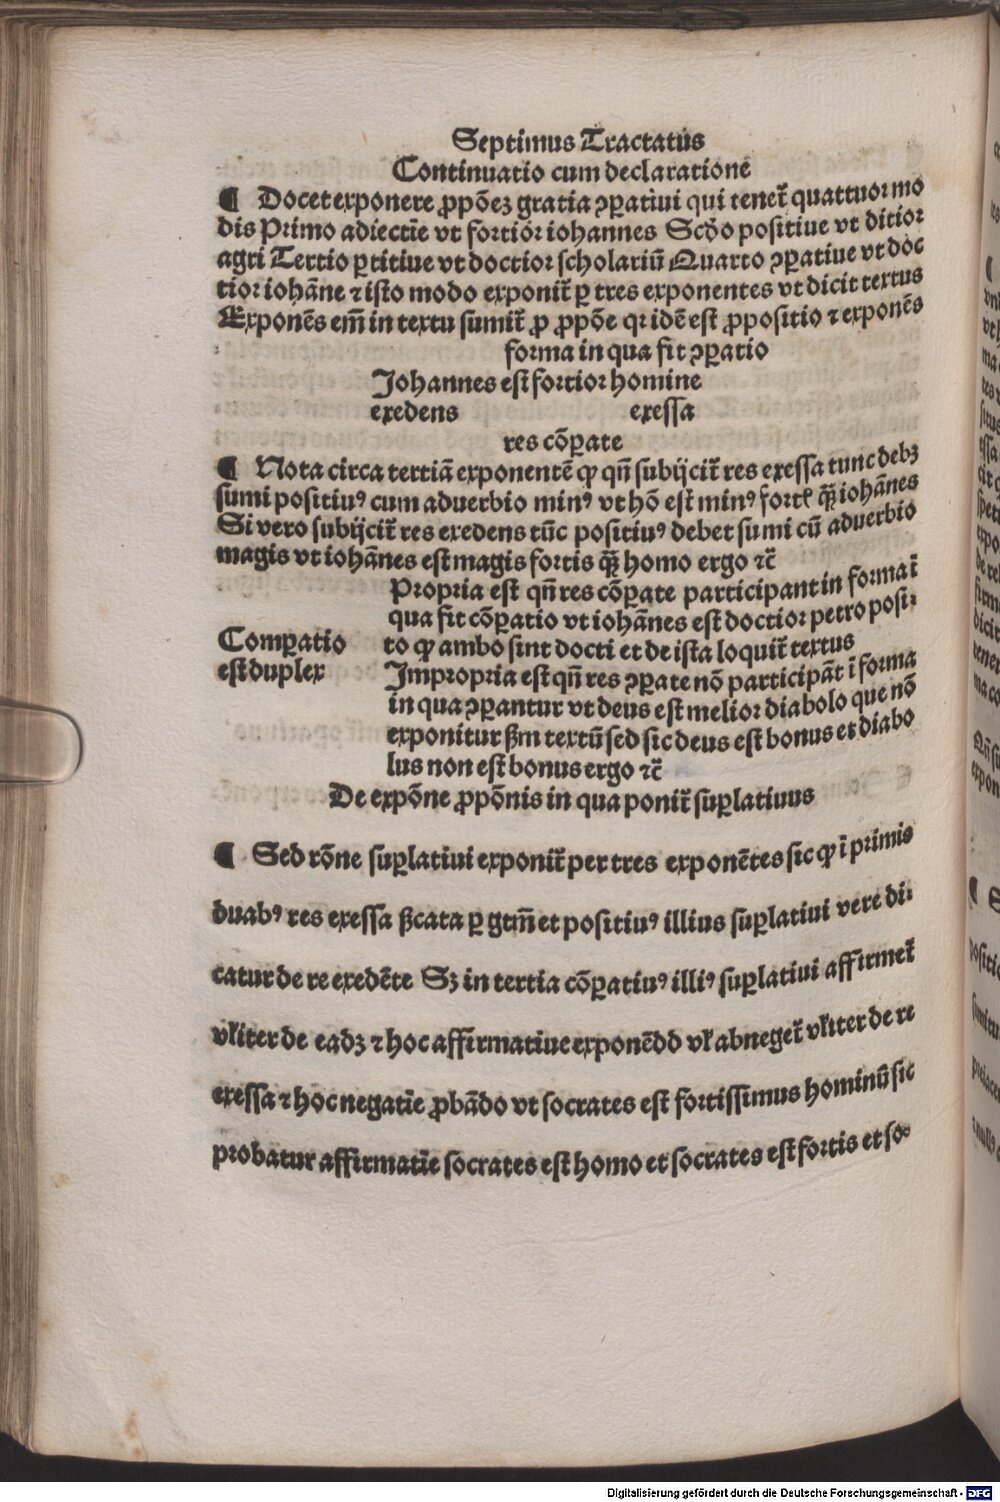 Septimus Tractatus
Continuatio cum declaratione
¶ Docet exponere ꝓpõez gratia ꝯꝑatiui qui tenet᷑ quattuor mo
dis Primo adiectiē vt fortior iohannes Scḋo positiue vt ditior
agri Tertio ꝑtitiue vt doctior scholariū Quarto ꝯꝑatiue vt doc
tior iohāne ⁊ isto modo exponit᷑ ꝑ tres exponentes vt dicit textus
Exponēs em̄ in textu sumit᷑ ꝓ ꝓpõe qꝛ idē est ꝓpositio ⁊ exponēs
forma in qua fit ꝯꝑatio
Johannes est fortior homine
exedens exessa
res cōꝑate
¶ Nota circa tertiā exponentē ꝙ qn̄ subijcit᷑ res exessa tunc debꝫ
sumi positiuꝰ cum aduerbio minꝰ vt hō est minꝰ fort᷑ qꝫ̄ iohānes
Si vero subijcit᷑ res exedens tūc positiuꝰ debet sumi cū aduerbio
magis vt iohānes est magis fortis qꝫ̄ homo ergo ⁊c̄
Propria est qn̄ res cōꝑate participant in forma ī
qua fit cōꝑatio vt iohānes est doctior petro posi-
Comꝑatio to ꝙ ambo sint docti et de ista loquit᷑ textus
est duplex Impropria est qn̄ res ꝯꝑate nō participāt ī forma
in qua ꝯꝑantur vt deus est melior diabolo que nō
exponitur ẜm textū sed sic deus est bonus et diabo
lus non est bonus ergo ⁊c̄
De expōne ꝓpōnis in qua ponit᷑ suꝑlatiuus
¶ Sed rōne suꝑlatiui exponit᷑ per tres exponētes sic ꝙ ī primis
duabꝰ res exessa ẜcata ꝑ gtm̄ et positiuꝰ illius suꝑlatiui vere di-
catur de re exedēte Sꝫ in tertia cōꝑatiuꝰ illiꝰ suꝑlatiui affirmet᷑
vl̄iter de eadꝫ ⁊ hoc affirmatiue exponēdo vl̄ abneget᷑ vl̄iter de re
exessa ⁊ hoc negatiē ꝓbādo vt socrates est fortissimus hominū sic
probatur affirmatiē socrates est homo et socrates est fortis et so-
Digitalisierung gefördert durch die Deutsche Forschungsgemeinschaft - DFG